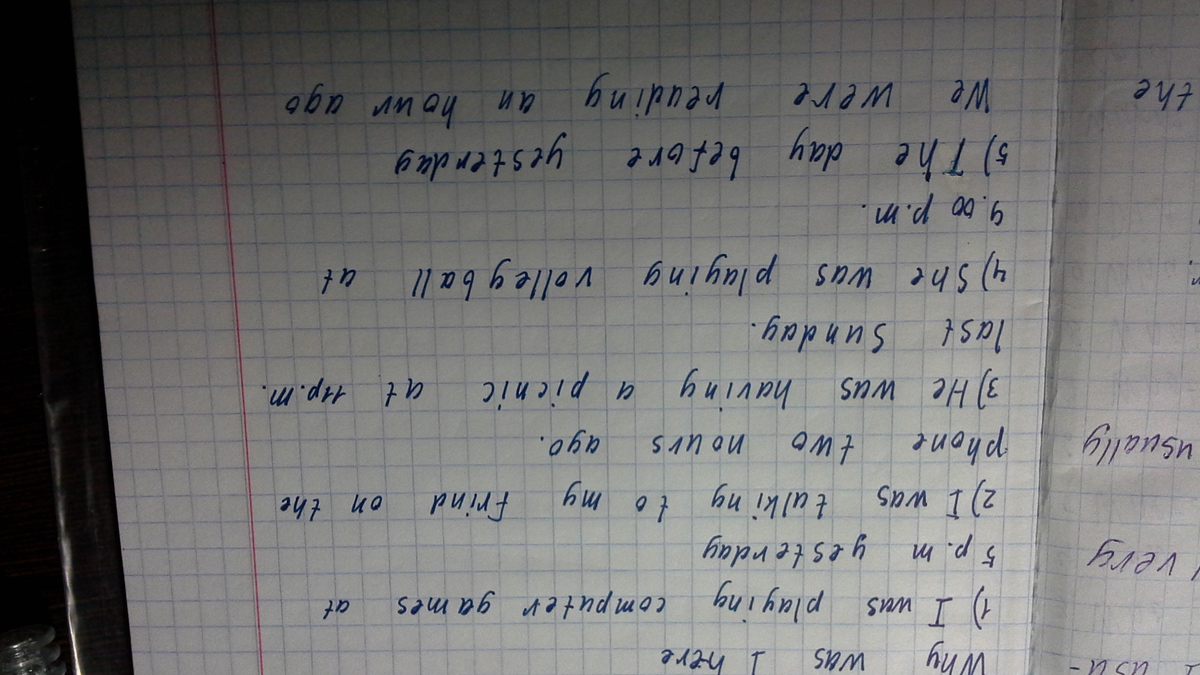 I usu-
very
usually
the
Why was I here
1) I was playing computer games at
5 p.m yesterday
2) I was talking to my frind on the
phone two hours ago.
3) He was having a picnic at 11p.m.
last Sunday.
4) She was playing volleyball at
9.00 p.m.
5) The day before yesterday
We were reading an hour ago